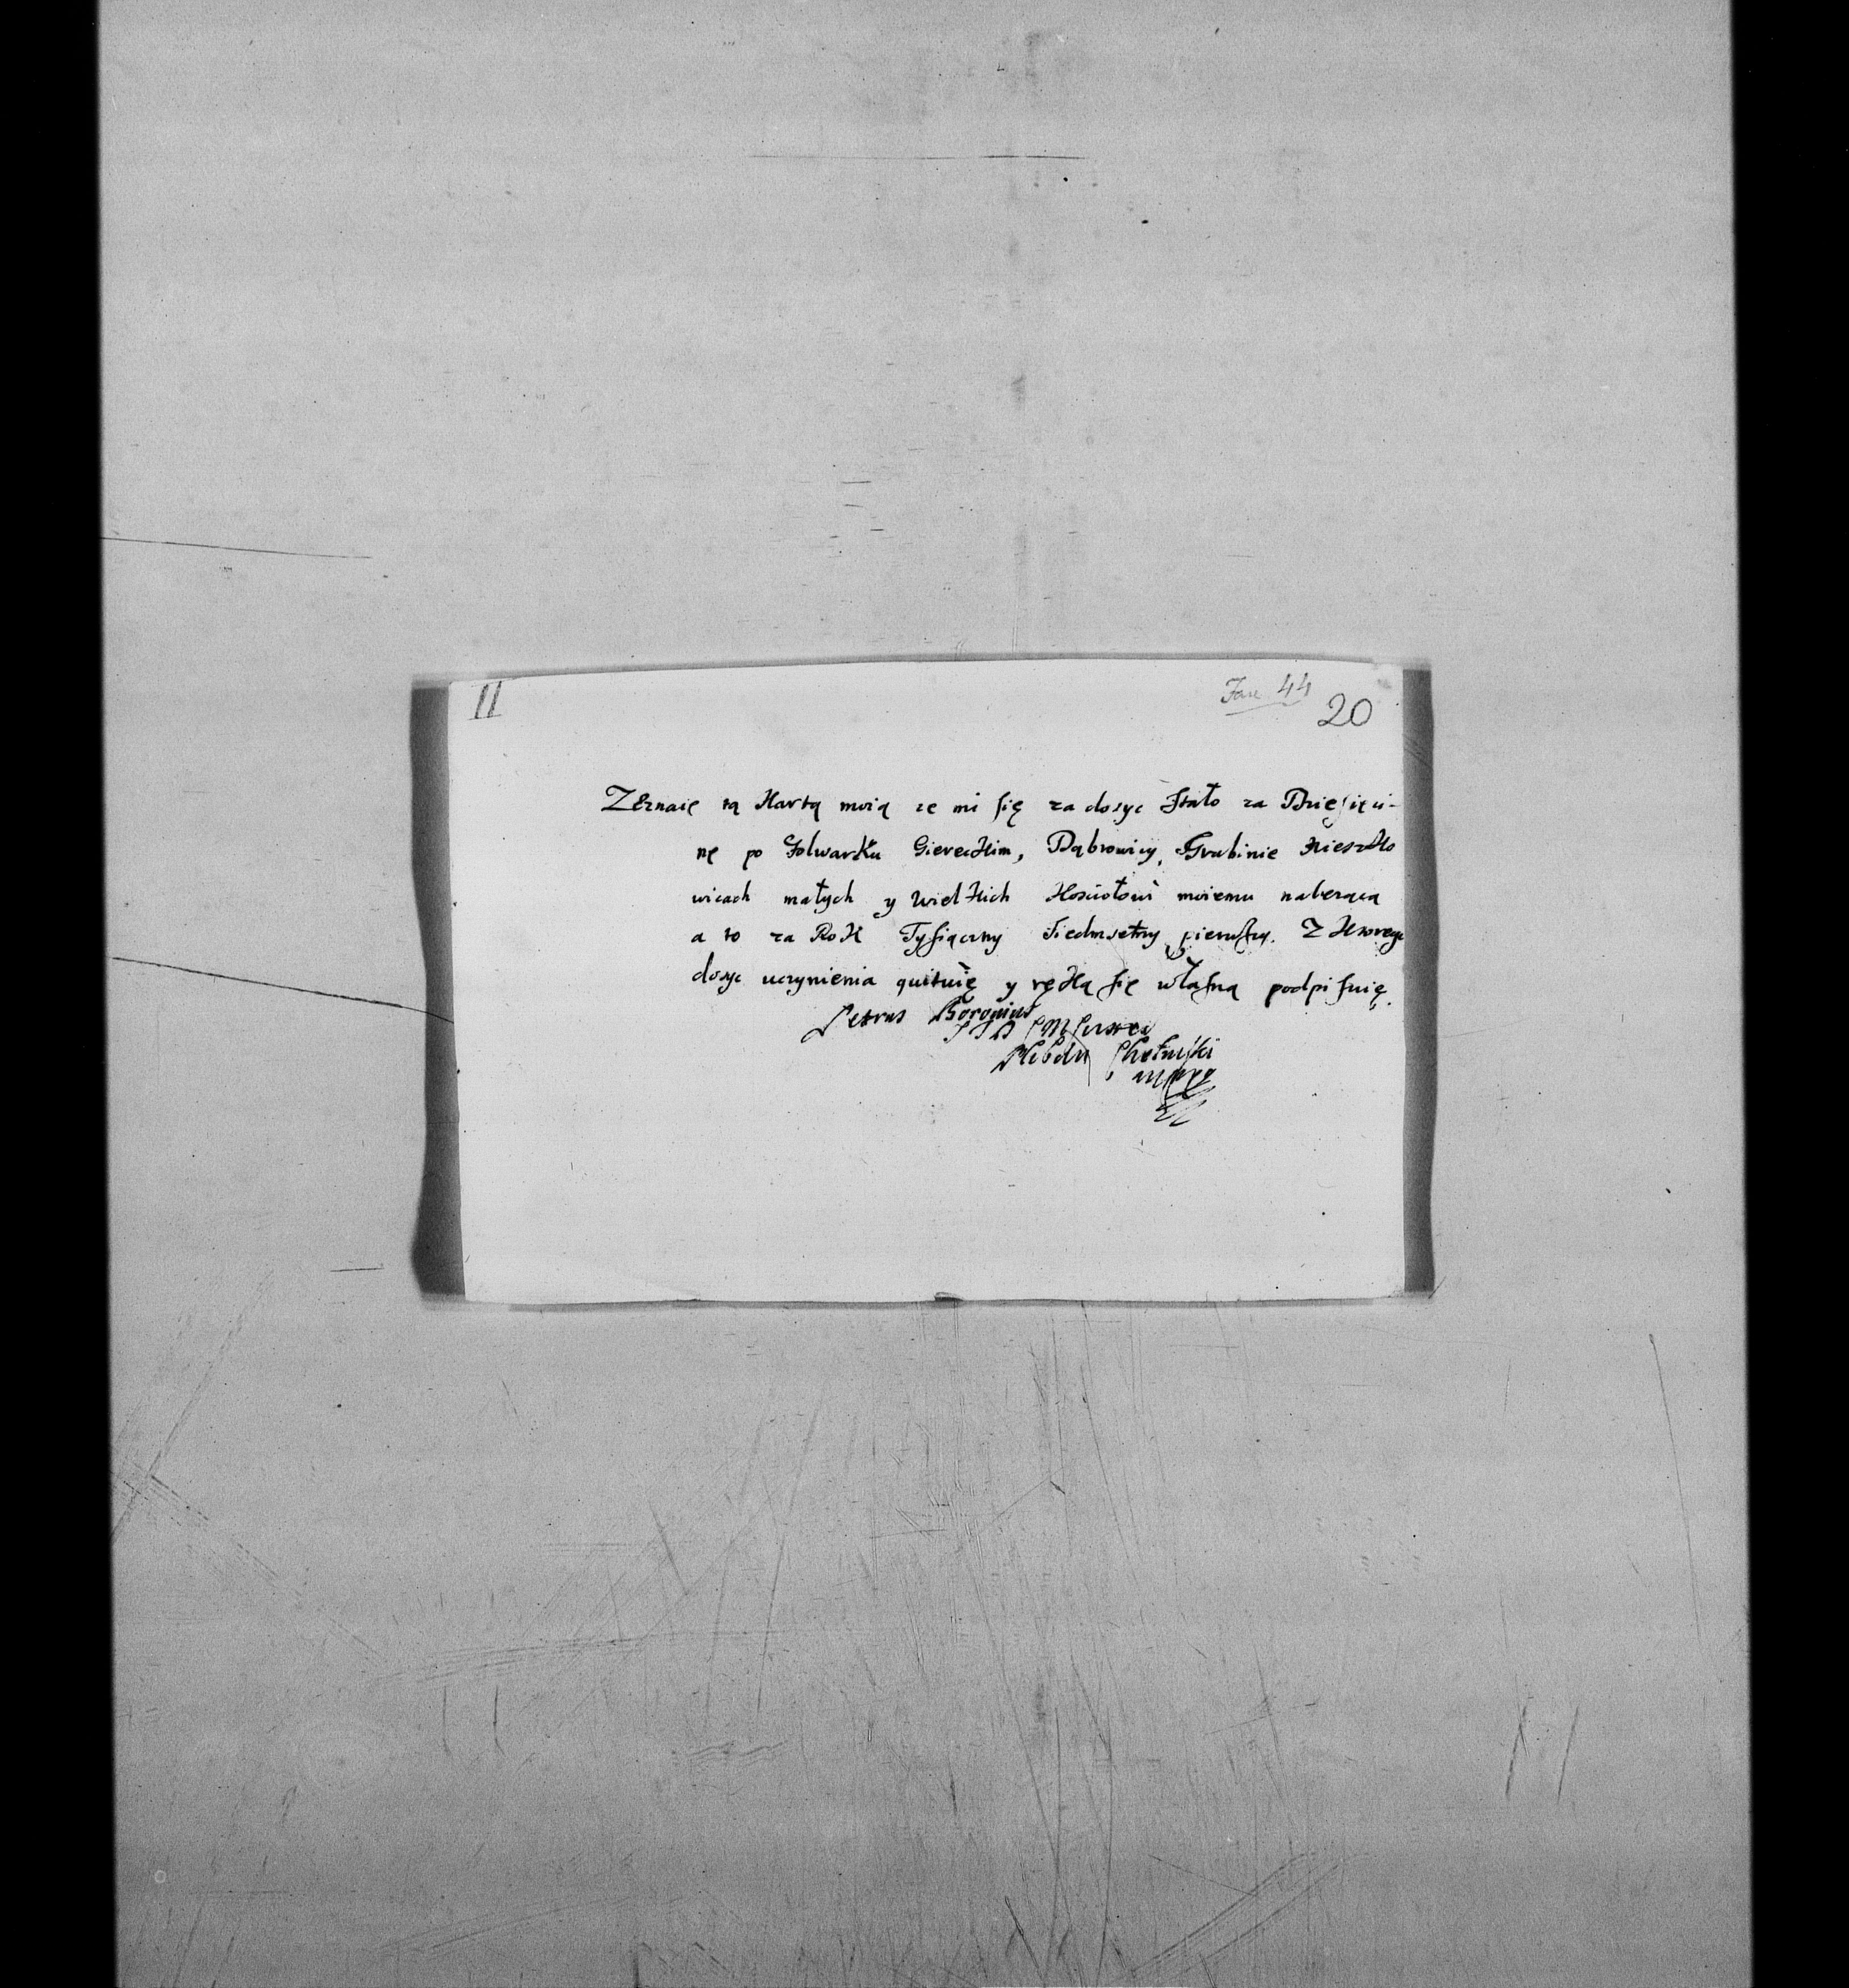 11
Fasc 44
20
ZEznaię tą Kartą moią ze mi się za dosyc stało za Dzięsięci-
nę po Folwarku Giereckim, Dąbrowicy, Grabinie Mieszko
wicach małych y wielkich Kościołowi moiemu nalezącą
a to za Rok Tysiączny Siedmsetny pierwszy. Z Ktorego
dosyc uczynienia quituię y ręką się własną podpisuię.
Petrus
Pleban
mppa